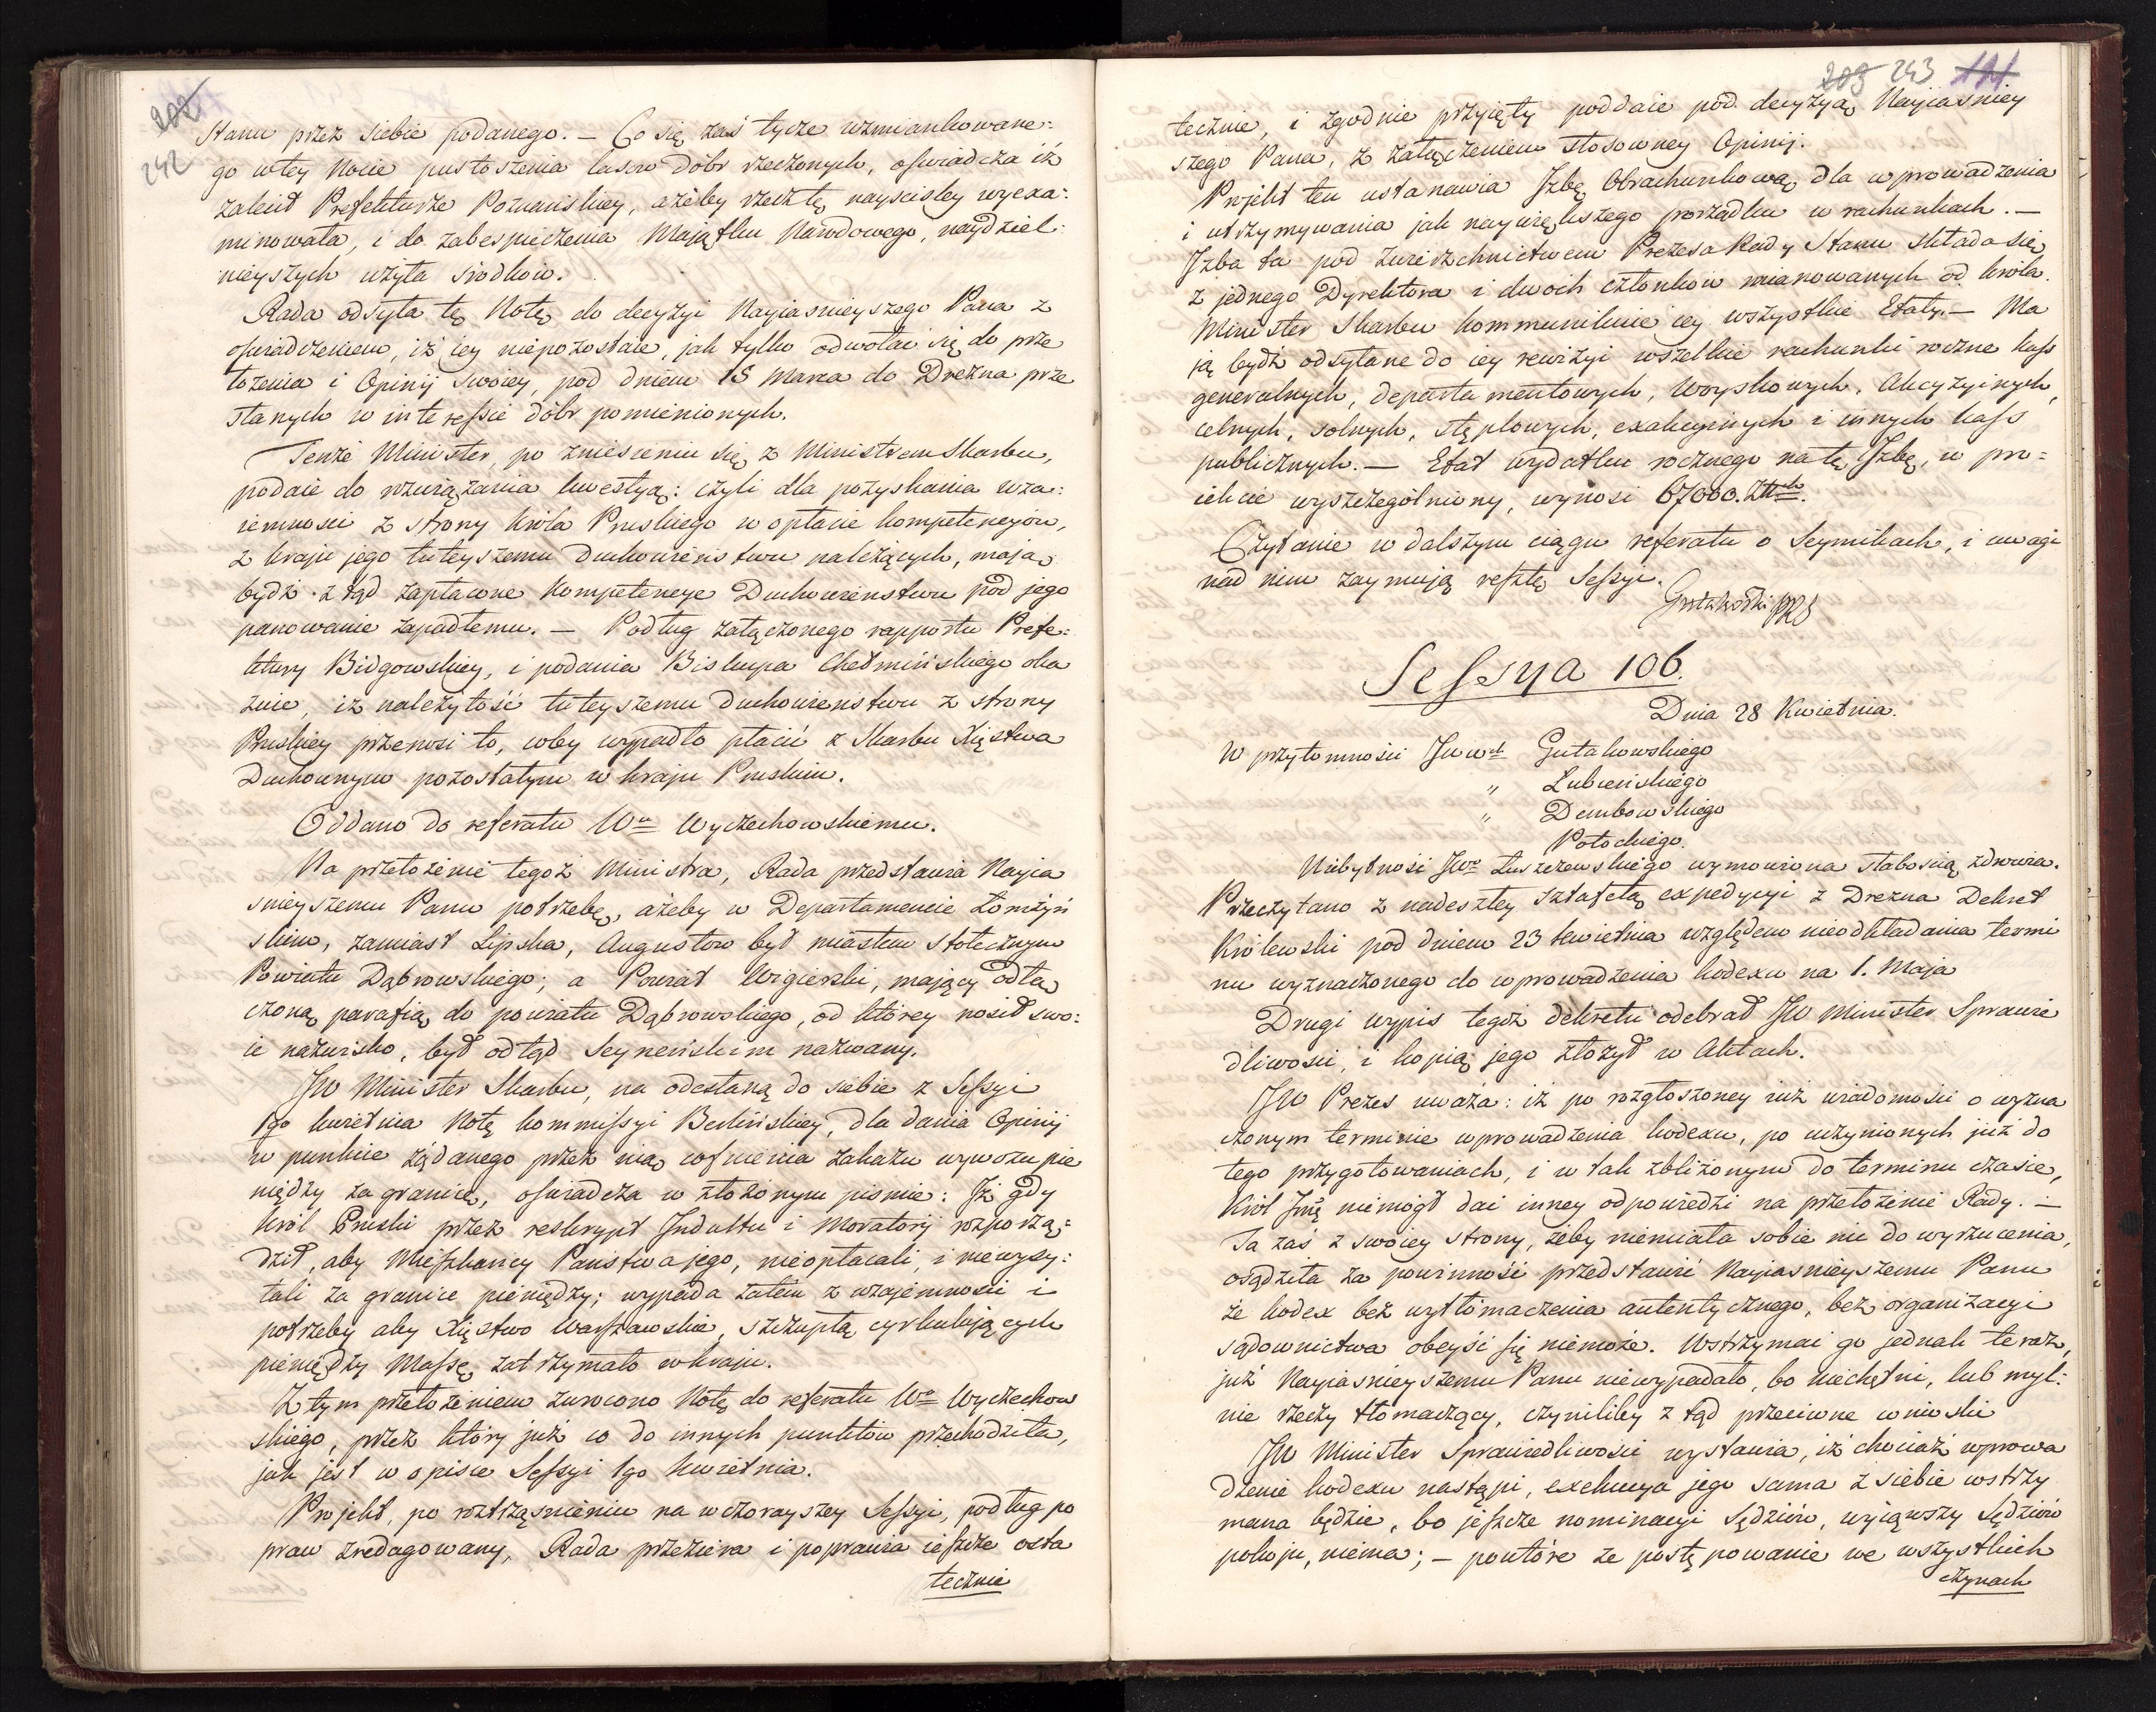 202
242
Stanu przez siebie podanego. – Co się zaś tycze wzmiankowane:
go w tey Nocie pustoszenia lasow dobr rzeczonych, oświadcza iż
zalecił Prefekturze Poznańskiey, ażeby rzecz tę nayściśley wyexa:
minowała, i do zabespieczenia Majątku Narodowego, naydziel:
nieyszych użyła srodków.
Rada odsyła tę Notę do decyzyi Nayiasnieyszego Pana z
oświadczeniem, iż iey niepozostaie, jak tylko odwołać się do prze
łożenia i Opinij swoiey, pod dniem 18 Marca do Drezna prze
słanych w interessie dóbr pomienionych.
Tenże Minister, po zniesieniu się z Ministrem Skarbu,
podaie do rozwiązania kwestyą: czyli dla pozyskania wza:
iemności z strony Króla Pruskiego w opłacie kompetencyów,
z kraju jego tuteyszemu Duchowienstwu należących, mają
bydź ztąd zapłacone Kompetencye Duchowieństwu pod jego
panowanie zapadłemu. – Podług załączonego rapportu Prefe:
ktury Bidgowskiey, i podania Biskupa Chełmińskiego oka
zuie, iż należytość tuteyszemu duchowienstwu z strony
Pruskiey przenosi to, coby wypadło płacić z Skarbu Xięstwa
Duchownym pozostałym w kraju Pruskim.
Oddano do referatu Wu Wyczechowskiemu.
Na przełożenie tegoż Ministra, Rada przedstawia Nayia
śnieyszemu Panu potrzebę, ażeby w Departamencie Łomżyń
skim, zamiast Lipska, Augustow był miastem stołecznym
Powiatu Dąbrowskiego; a Powiat Wigierski, mający odłą
czoną parafią do powiatu Dąbrowskiego, od którey nosił swo:
ie nazwisko, był odtąd Seyneńskim nazwany.
JW Minister Skarbu, na odesłaną do siebie z Sessyi
1go kwietnia Notę kommissyi Berlińskiey, dla dania Opinij
w punkcie żądanego przez nią cofnienia zakazu wywozu pie
niędzy za granicę, oświadcza w złożonym pismie: Iż gdy
Król Pruski przez reskrypt Indultu i Moratorij rozporzą:
dził, aby Mieszkańcy Państwa jego, nieopłacali, i niewysy:
łali za granice pieniędzy; wypada zatem z wzajemności i
potrzeby aby Xięstwo Warszawskie, szczupłą cyrkulujących
pieniędzy Massę zatrzymało w kraju.
Z tym przełożeniem zwrocono Notę do referatu Wo Wyczechow
skiego, przez który już co do innych punktów przechodziła,
jak jest w opisie Sessyi 1go Kwietnia.
Projekt, po roztrząśnieniu na wczorayszey Sessyi, podług po
praw zredagowany, Rada przeziera i poprawia ieszcze osta
tecznie
203 243 121
tecznie, i zgodnie przyięty poddaie pod decyzyą Nayiasniey
szego Pana, z załączeniem stosowney Opinij.
Projekt ten ustanawia Izbę Obrachunkową dla wprowadzenia
i utrzymywania jak naywiększego porządku w rachunkach. –
Izba ta pod zwierzchnictwem Prezesa Rady Stanu składa się
z jednego Dyrektora i dwoch członków mianowanych od króla.
Minister Skarbu kommunikuie iey wszystkie Etaty. – Ma
ją bydź odsyłane do iey rewizyi wszelkie rachunki roczne kass
generalnych, departamentowych, Woyskowych, Akcyzyinych,
celnych, solnych, stęplowych, exakcyinych i innych kass
publicznych. – Etat wydatku rocznego na tę Izbę, w pro=
iekcie wyszczególniony, wynosi 67000. Złłch.
Czytanie w dalszym ciągu referatu o Seymikach, i uwagi
nad nim zaymują resztę Sessyi.
Gutakowski PRS
Sessya 106.
Dnia 28 Kwietnia.
W przytomności JWwch Gutakowskiego
„ Lubieńskiego
„ Dembowskiego
Potockiego.
Niebytność JWo Łuszczewskiego wymowiona słabością zdrowia.
Przeczytano z nadeszłey sztafetą expedycyi z Drezna Dekret
Królewski pod dniem 23 kwietnia względem nieodkładania termi
nu wyznaczonego do wprowadzenia kodexu na 1. Maja
Drugi wypis tegoż dekretu odebrał JW Minister Sprawie
dliwości, i kopią jego złożył w Aktach.
JW Prezes uważa: iż po rozgłoszoney już wiadomości o wyzna
czonym terminie wprowadzenia kodexu, po uczynionych już do
tego przygotowaniach, i w tak zbliżonym do terminu czasie,
Król Jmę niemógł dać inney odpowiedzi na przełożenie Rady. –
Ta zaś z swoiey strony, żeby niemiała sobie nic do wyrzucenia,
osądziła za powinność przedstawić Nayiasnieyszemu Panu
że kodex bez wytłomaczenia autentycznego, bez organizacyi
sądownictwa obeyść się niemoże. Wstrzymać go jednak teraz,
już Nayiaśnieyszemu Panu niewypadało, bo niechętni, lub myl:
nie rzeczy tłomaczący, czyniliby ztąd przeciwne wnioski
JW Minister Sprawiedliwości wystawia, iż chociaż wprowa
dzenie kodexu nastąpi, exekucya jego sama z siebie wstrzy
mana będzie, bo jeszcze nominacyi Sędziów, wyiąwszy Sędziów
pokoju, niema; – powtóre że postępowanie we wszystkich
czynach